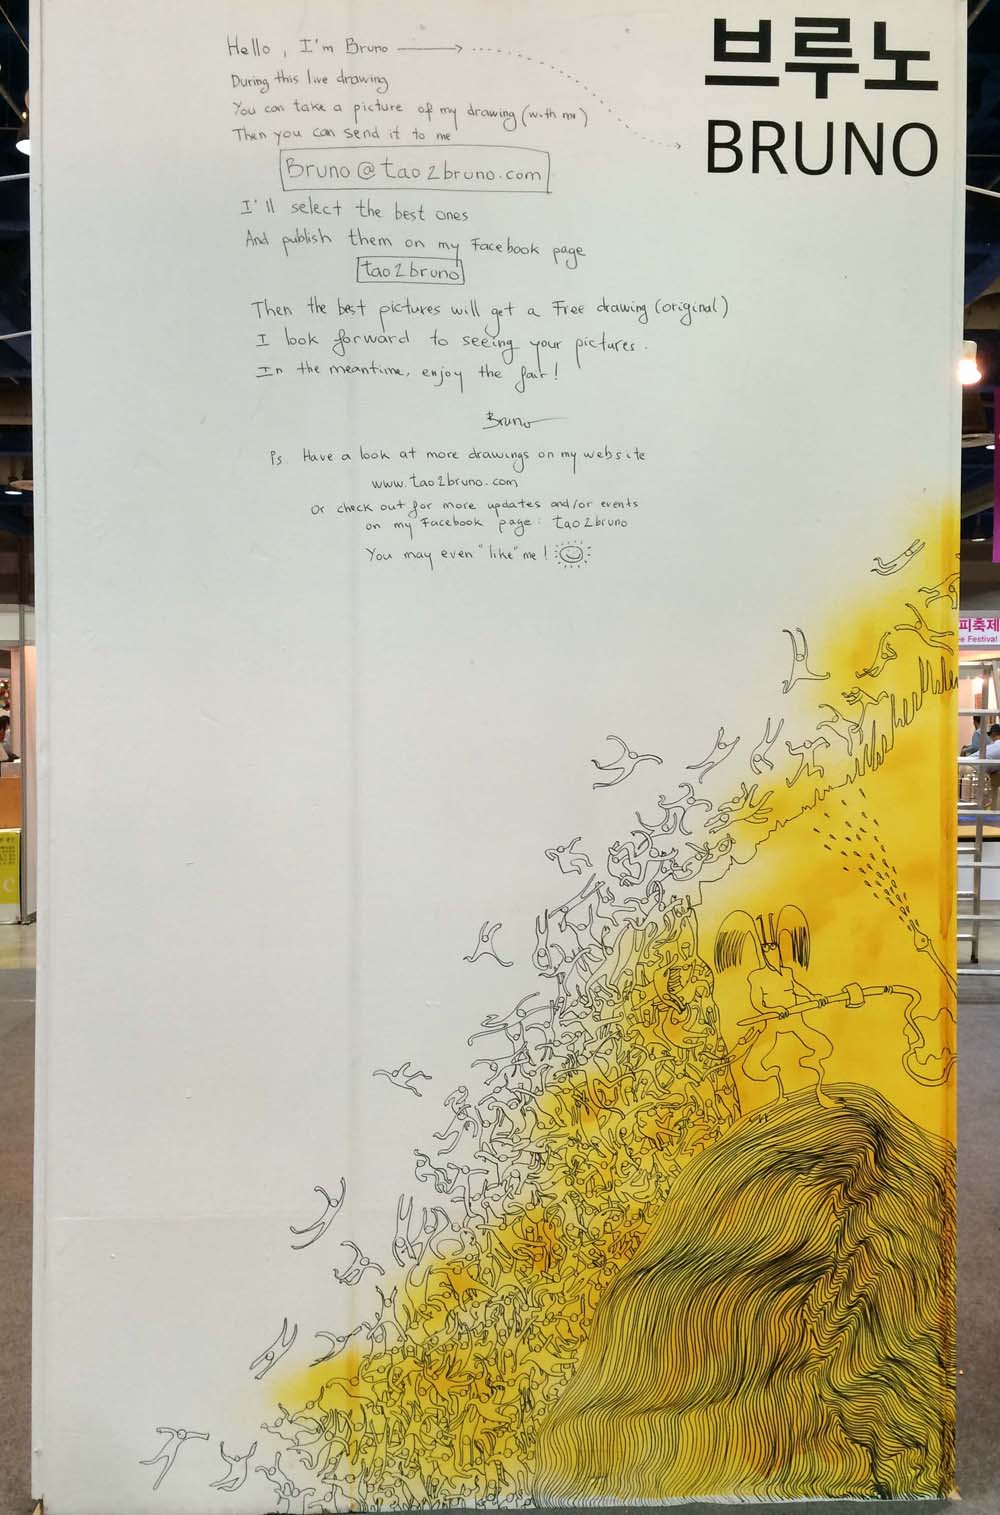 브루노
BRUNO
Hello, I'm Bruno
During this live drawing
You can take a picture of my drawing (with me)
Then you can send it to me
Bruno@tao2bruno.com
I'll select the best ones
And publish them on my Facebook page
tao2bruno
Then the best pictures will get a Free drawing (original)
I look forward to seeing your pictures.
In the meantime, enjoy the fair!
Bruno
Ps. Have a look at more drawings on my website
www.tao2bruno.com
Or check out for more updates and/or events
on my Facebook page: tao2bruno
You may even "like" me!
피축제
e Festival